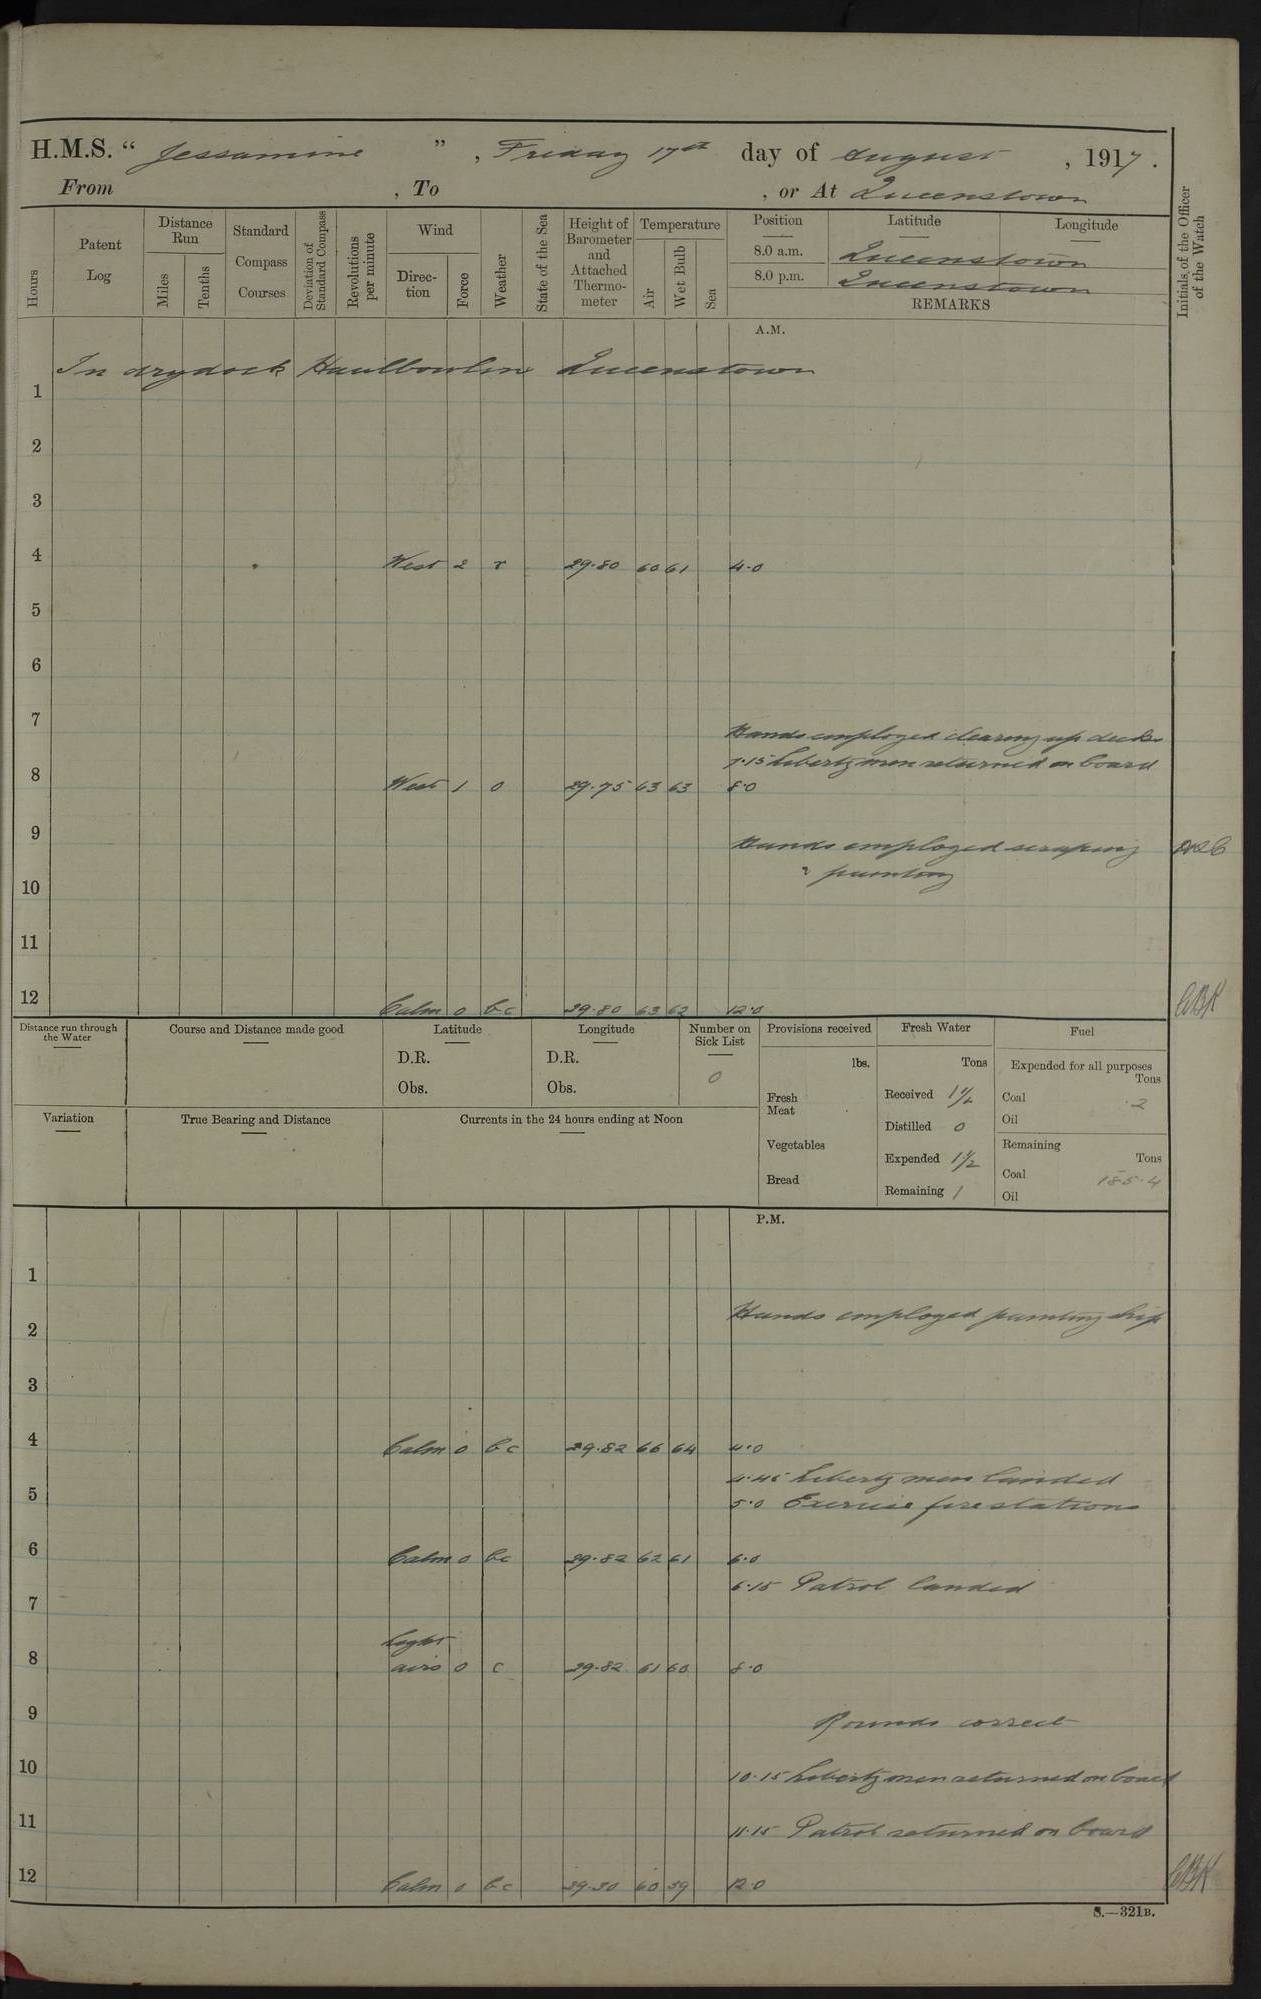 H.M.S. “ Jessamine ” , Friday 17th day of August , 1917 .
From , To , or At Queenstown
Hours
Patent Log
Distance Run
Miles
Tenths
Standard Compass Courses
Deviation of Standard Compass
Revolutions per minute
Wind
Direc-tion
Force
Weather
State of the Sea
Height of Barometer and Attached Thermo-meter
Temperature
Air
Wet Bulb
Sea
Position Latitude Longitude
8.0 a.m. Queenstown
8.0 p.m. Queenstown
REMARKS
Initials of the Officer of the Watch
A.M.
In drydock Haulbowline Queenstown
1
2
3
4 West 2 r 29.80 60 61 4.0
5
6
7
Hands employed clearing up decks
7.15 Liberty men returned on board
8 West 1 o 29.75 63 63 8.0
9 Hands employed scraping
& painting
10
11
12 Calm 0 bc 29.80 63 62 12.0 CBK
Distance run through the Water
Course and Distance made good
Latitude
D.R.
Obs.
Longitude
D.R.
Obs.
Number on Sick List
0
Provisions received
lbs.
Fresh Meat
Vegetables
Bread
Fresh Water
Tons
Received 1 1/2
Distilled 0
Expended 1 1/2
Remaining 1
Fuel
Expended for all purposes
Tons
Coal .2
Oil
Remaining
Tons
Coal 185.4
Oil
Variation
True Bearing and Distance
Currents in the 24 hours ending at Noon
P.M.
1
2 Hands employed painting ship
3
4 Calm 0 bc 29.82 66 64 4.0
4.45 Liberty men landed
5 5.0 Exercise fire stations
6 Calm 0 bc 29.82 62 61 6.0
6.15 Patrol landed
7
8 Light airs 0 c 29.82 61 60 8.0
9 Rounds correct
10 10.15 Liberty men returned on board
11 11.15 Patrol returned on board
12 Calm 0 bc 60 59 12.0 CBK
S.—321B.